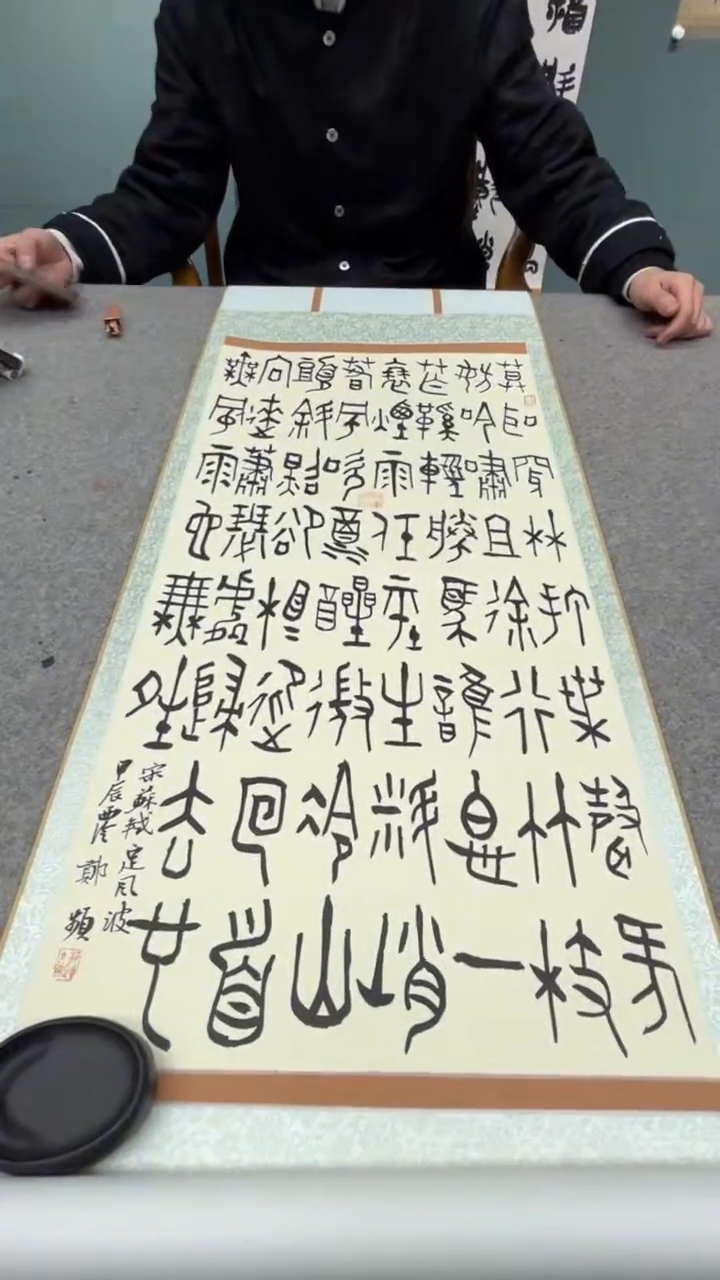 莫聽穿林打葉聲何
妨吟嘯且徐行竹杖
芒鞋輕勝馬誰怕一
蓑煙雨任平生料峭
春風吹酒醒微冷山
頭斜照卻相迎回首
向來蕭瑟處歸去也
無風雨也無晴
宋蘇軾定風波
甲辰 鄭